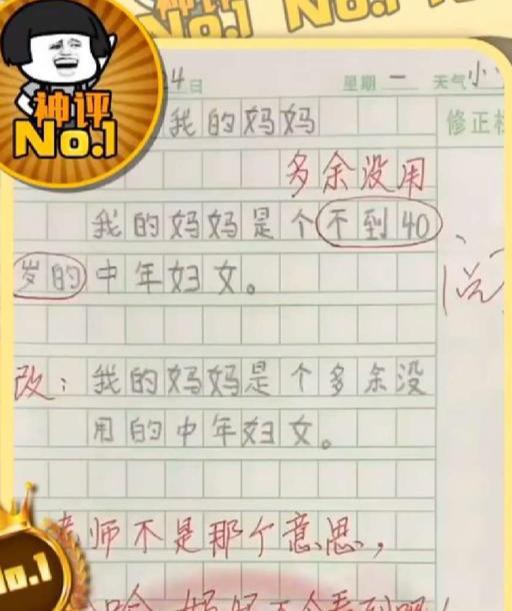 No.1
No.1
神评
No.1
4日 星期一 天气小
我的妈妈
修正栏
多余没用
我的妈妈是个不到40
岁的中年妇女。
改：我的妈妈是个多余没
用的中年妇女。
老师不是那个意思，
No.1